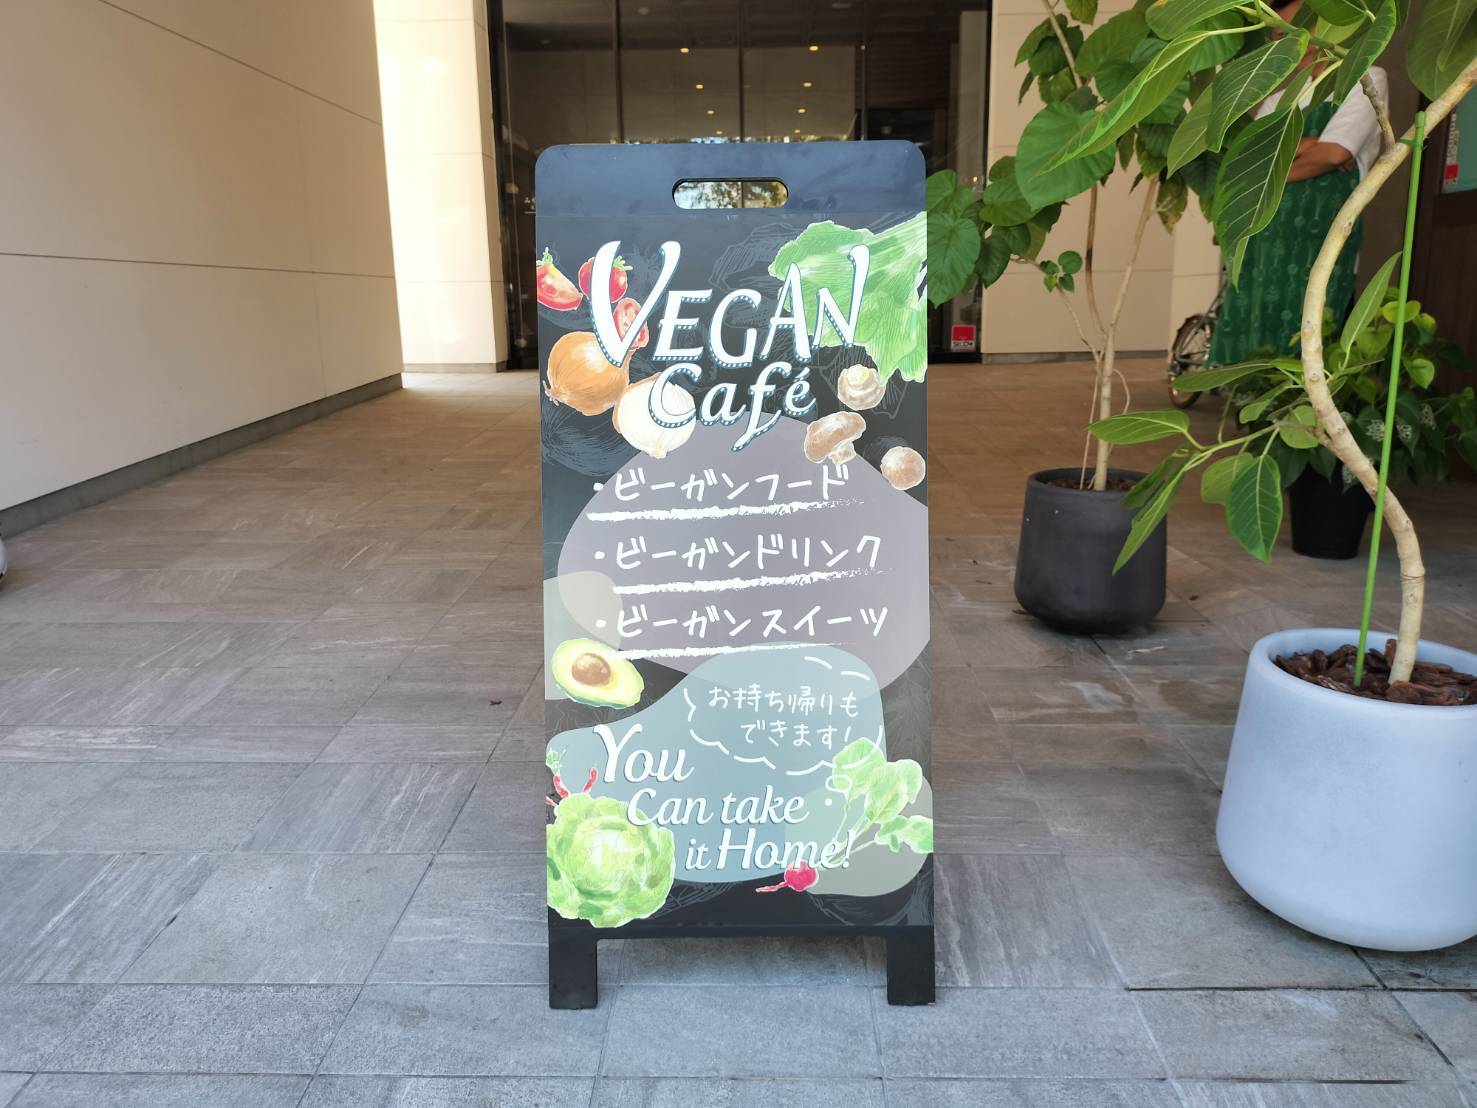 VEGAN
Café
・ビーガンフード
・ビーガンドリンク
・ビーガンスイーツ
お持ち帰りも
できます!
You
Can take
it Home!